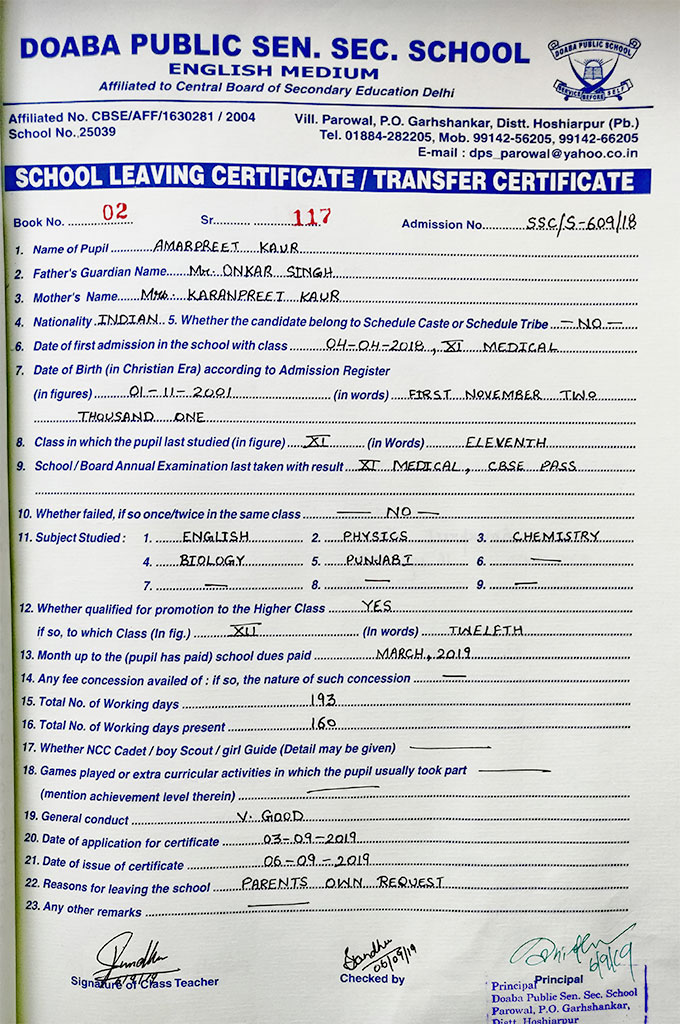 DOABA PUBLIC SEN. SEC. SCHOOL
ENGLISH MEDIUM
Affiliated to Central Board of Secondary Education Delhi
DOABA PUBLIC SCHOOL
SERVICE BEFORE SELF
Affiliated No. CBSE/AFF/1630281 / 2004
School No.,25039
Vill. Parowal, P.O. Garhshankar, Distt. Hoshiarpur (Pb.)
Tel. 01884-282205, Mob. 99142-56205, 99142-66205
E-mail : dps_parowal@yahoo.co.in
SCHOOL LEAVING CERTIFICATE / TRANSFER CERTIFICATE
Book No. 02 Sr. 117 Admission No. SSC/S-609/18
1. Name of Pupil AMARPREET KAUR
2. Father's Guardian Name Mr. ONKAR SINGH
3. Mother's Name Mrs. KARANPREET KAUR
4. Nationality INDIAN 5. Whether the candidate belong to Schedule Caste or Schedule Tribe — NO —
6. Date of first admission in the school with class 04-04-2018, XI MEDICAL
7. Date of Birth (in Christian Era) according to Admission Register
(in figures) 01-11-2001 (in words) FIRST NOVEMBER TWO
THOUSAND ONE
8. Class in which the pupil last studied (in figure) XI (in Words) ELEVENTH
9. School / Board Annual Examination last taken with result XI MEDICAL, CBSE PASS
10. Whether failed, if so once/twice in the same class — NO —
11. Subject Studied : 1. ENGLISH 2. PHYSICS 3. CHEMISTRY
4. BIOLOGY 5. PUNJABI 6. —
7. — 8. — 9. —
12. Whether qualified for promotion to the Higher Class YES
if so, to which Class (In fig.) XII (In words) TWELFTH
13. Month up to the (pupil has paid) school dues paid MARCH, 2019
14. Any fee concession availed of : if so, the nature of such concession —
15. Total No. of Working days 193
16. Total No. of Working days present 160
17. Whether NCC Cadet / boy Scout / girl Guide (Detail may be given) —
18. Games played or extra curricular activities in which the pupil usually took part —
(mention achievement level therein) —
19. General conduct V. GOOD
20. Date of application for certificate 03-09-2019
21. Date of issue of certificate 06-09-2019
22. Reasons for leaving the school PARENTS OWN REQUEST
23. Any other remarks —
Sandhu 06/09/19
6/9/19
Signature of Class Teacher
Checked by
Principal
Principal
Doaba Public Sen. Sec. School
Parowal, P.O. Garhshankar,
Distt. Hoshiarpur